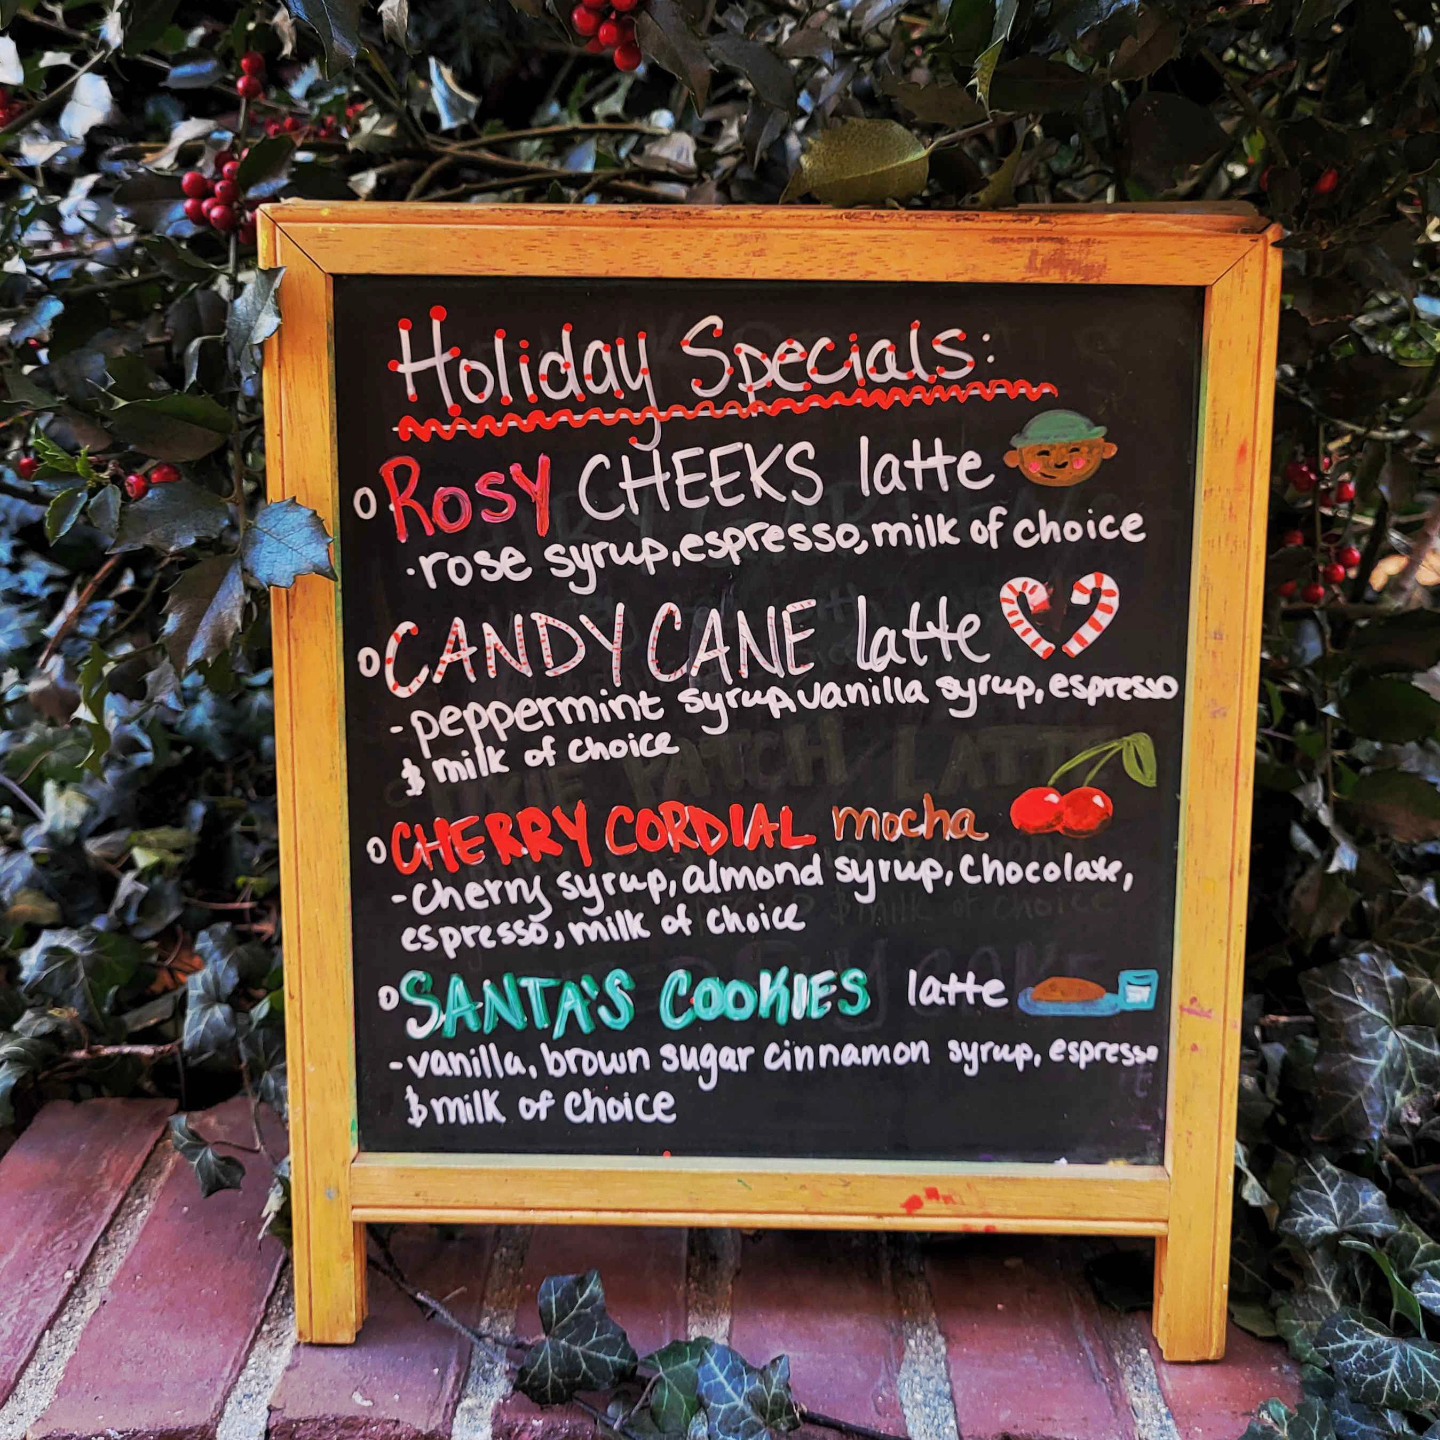 Holiday Specials:
Rosy CHEEKS latte
·rose syrup, espresso, milk of choice
CANDY CANE latte
-peppermint syrup, vanilla syrup, espresso
& milk of choice
CHERRY CORDIAL mocha
-cherry syrup, almond syrup, chocolate,
espresso, milk of choice
SANTA'S COOKIES latte
-vanilla, brown sugar cinnamon syrup, espresso
& milk of choice